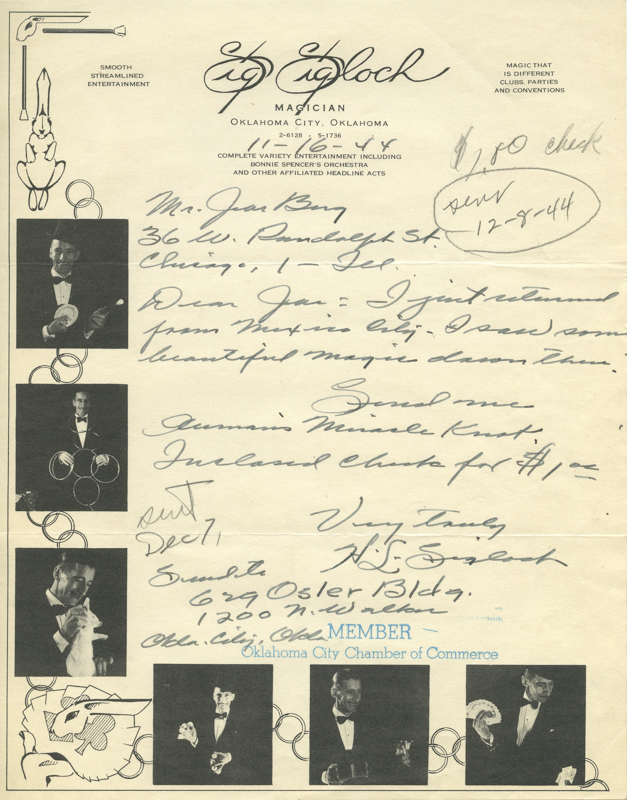 SMOOTH
STREAMLINED
ENTERTAINMENT
Sig Sigloch
MAGICIAN
OKLAHOMA CITY, OKLAHOMA
2-6128 - 5-1736
11-16-44
COMPLETE VARIETY ENTERTAINMENT INCLUDING
BONNIE SPENCER'S ORCHESTRA
AND OTHER AFFILIATED HEADLINE ACTS
MAGIC THAT
IS DIFFERENT
CLUBS, PARTIES
AND CONVENTIONS
check
sent
12-8-44
Mr. Joe Berg
36 W. Randolph St.
Chicago, 1 - Ill.
Dear Joe = I just returned
from Mexico City - I saw som
beautiful magic down there.
Send me
Miracle Knot.
Inclosed check for $1.00
sent
Dec 7,
Very truly
H.L. Sigloch
Send to
629 Osler Bldg.
1200 N. Walker
Okla. City, Okla
MEMBER
Oklahoma City Chamber of Commerce